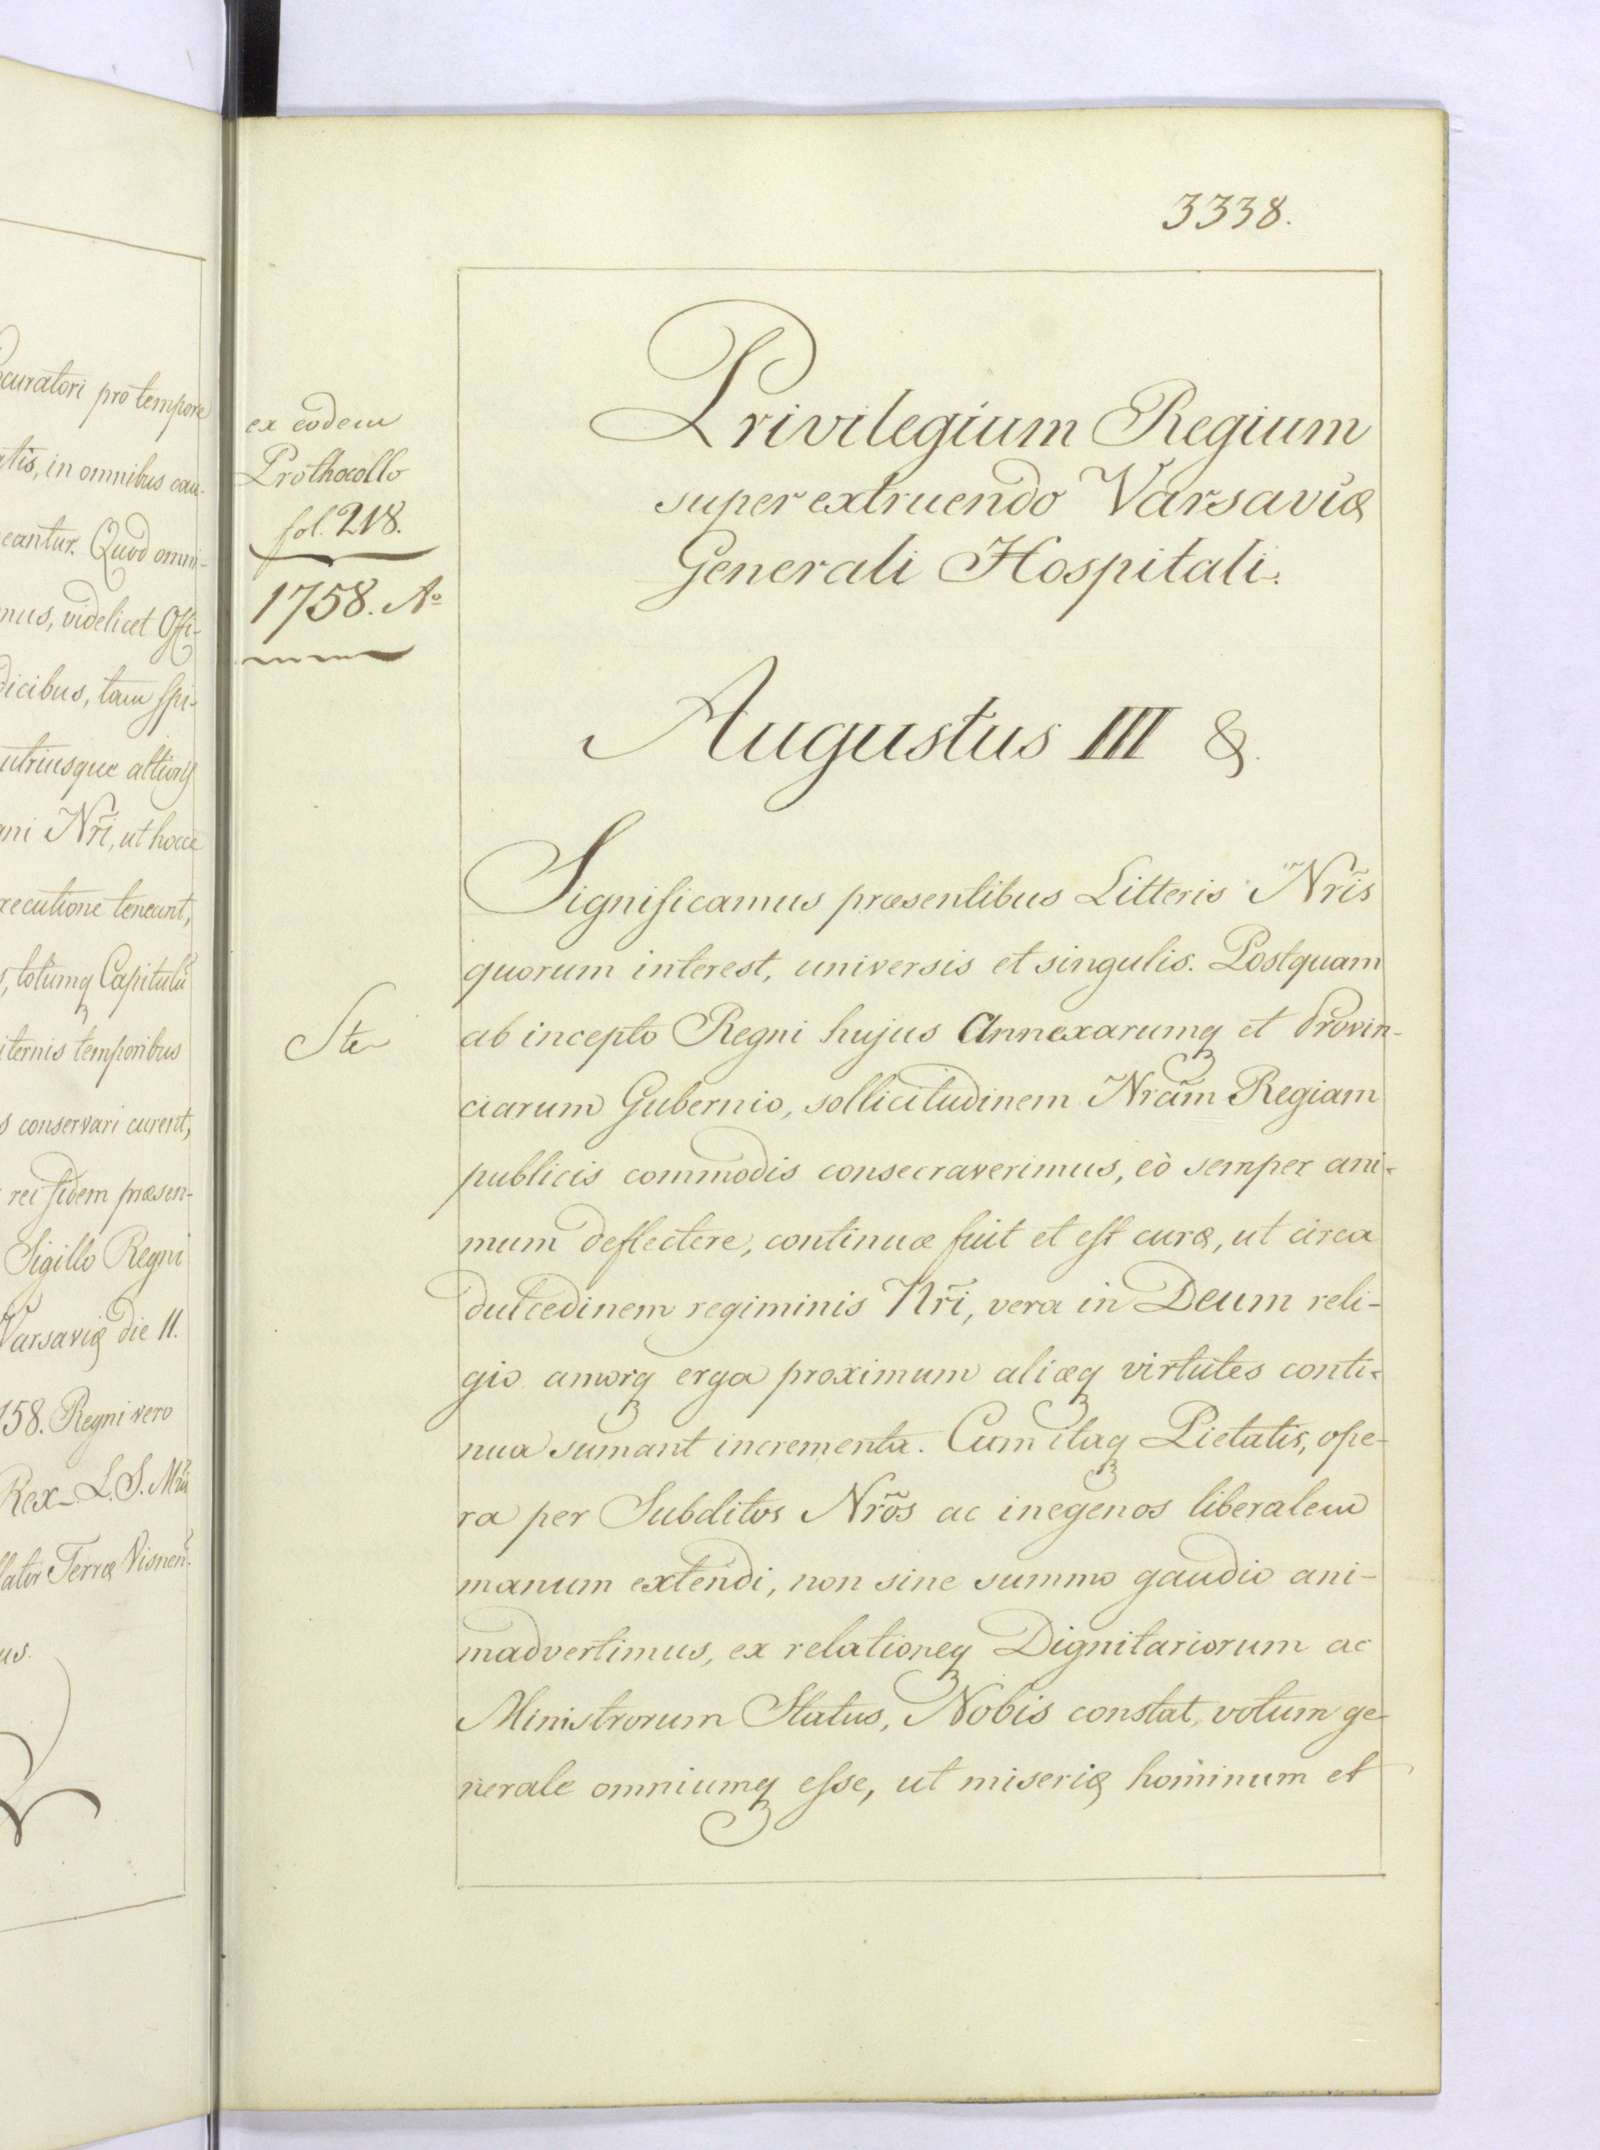 curatori pro tempore
atis, in omnibus cau-
eantur. Quod omni-
mus, videlicet Offi-
dicibus, tam Spi-
utriusque
ani Nr̃i, ut hocce
xecutione teneant,
s, totumq Capitulũ
iternis temporibus
s conservari curent,
rei fidem præsen-
Sigillo Regni
Varsaviæ die 11.
758. Regni vero
Rex_ L. S.
lator Terræ
us.
3338.
ex eodem
Prothocollo
fol. 218.
1758. Aº
Privilegium Regium
super extruendo Varsaviæ
Generali Hospitali.
Augustus III &.
Significamus præsentibus Litteris Nr̃is
quorum interest, universis et singulis. Postquam
ab incepto Regni hujus Annexarumq et Provin-
ciarum Gubernio, sollicitudinem Nr̃am Regiam
publicis commodis consecraverimus, eò semper ani-
mum deflectere, continuæ fuit et est curæ, ut circa
dulcedinem regiminis Nr̃i, vera in Deum reli-
gio amorq erga proximum aliæq virtutes conti-
nua sumant incrementa. Cum itaq Pietatis, ope-
ra per Subditos Nr̃os ac inegenos liberalem
manum extendi, non sine summo gaudio ani-
madvertimus, ex relationeq Dignitariorum ac
Ministrorum Status, Nobis constat, votum ge-
nerale omniumq esse, ut miseriæ hominum et